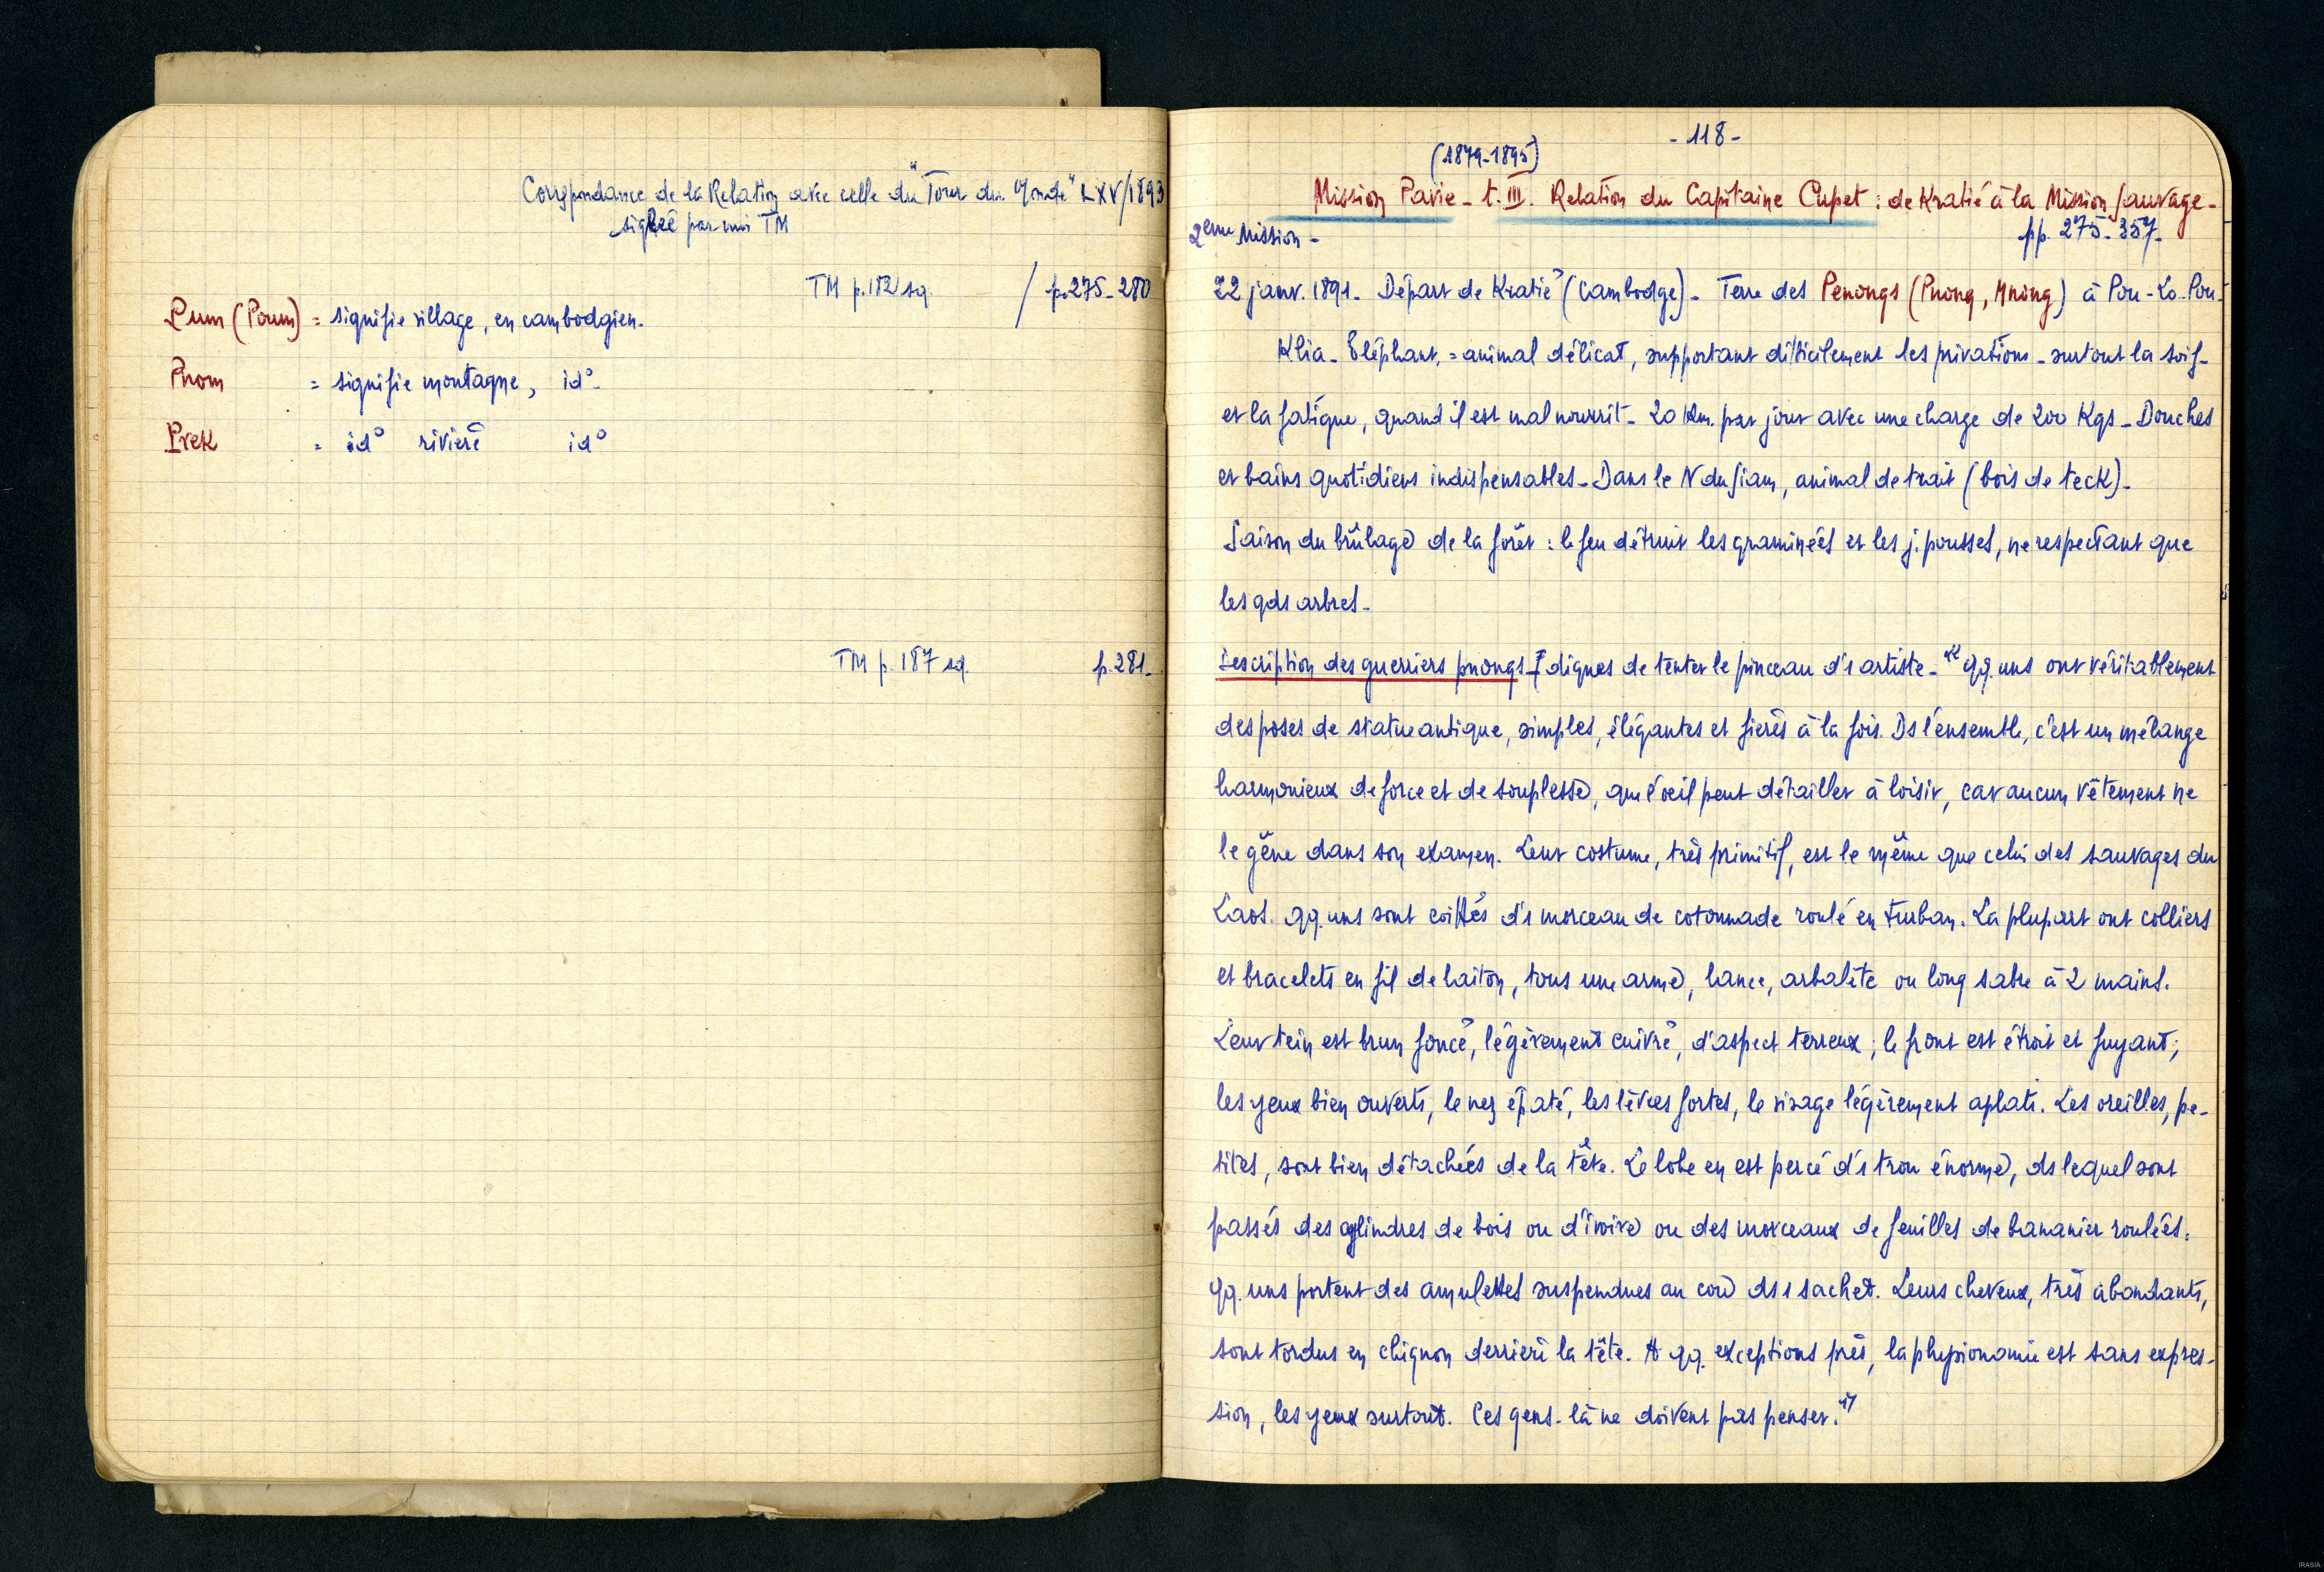 Correspondance de la Relation avec celle du "Tour du Monde" LXV/1893
siglée par moi TM
TM p. 182 sq. / p. 275-280
Pum (Poum) = signifie village, en cambodgien.
Pnom = signifie montagne, id°.
Prek = id° rivière id°
TM p. 187 sq. p. 281_
- 118 -
(1879-1895)
Mission Pavie - t. III. Relation du Capitaine Cupet : de Kratié à la Mission sauvage -
2ème Mission - pp. 275-357.
22 janv. 1891. Départ de Kratié (Cambodge). Terre des Penongs (Pnong, Mnong) à Pou-Lo-Pou-
Klia. Eléphant, = animal délicat, supportant difficilement les privations - surtout la soif -
et la fatigue, quand il est mal nourrit. 20 Km. par jour avec une charge de 200 Kgs - Douches
et bains quotidiens indispensables - Dans le N du Siam, animal de trait (bois de teck) -
Saison du brûlage de la forêt : le feu détruit les graminées et les j. pousses, ne respectant que
les gds arbres -
Description des guerriers pnongs - dignes de tenter le pinceau d'1 artiste - "qq. uns ont véritablement
des poses de statue antique, simples, élégantes et fières à la fois. Ds l'ensemble, c'est un mélange
harmonieux de force et de souplesse, que l'oeil peut détailler à loisir, car aucun vêtement ne
le gêne dans son examen. Leur costume, très primitif, est le même que celui des sauvages du
Laos. qq. uns sont coiffés d'1 morceau de cotonnade roulé en turban. La plupart ont colliers
et bracelets en fil de laiton, tous une arme, lance, arbalète ou long sabre à 2 mains.
Leur tein est brun foncé, légèrement cuivré, d'aspect terreux ; le front est étroit et fuyant ;
les yeux bien ouverts, le nez épaté, les lèvres fortes, le visage légèrement aplati. Les oreilles, pe-
tites, sont bien détachées de la tête. Le lobe en est percé d'1 trou énorme, ds lequel sont
passés des cylindres de bois ou d'ivoire ou des morceaux de feuilles de bananier roulées.
qq. uns portent des amulettes suspendues au cou ds 1 sachet. Leurs cheveux, très abondants,
sont tordus en chignon derrière la tête. A qq. exceptions près, la physionomie est sans expres-
sion, les yeux surtout. Ces gens-là ne doivent pas penser."
IRASIA